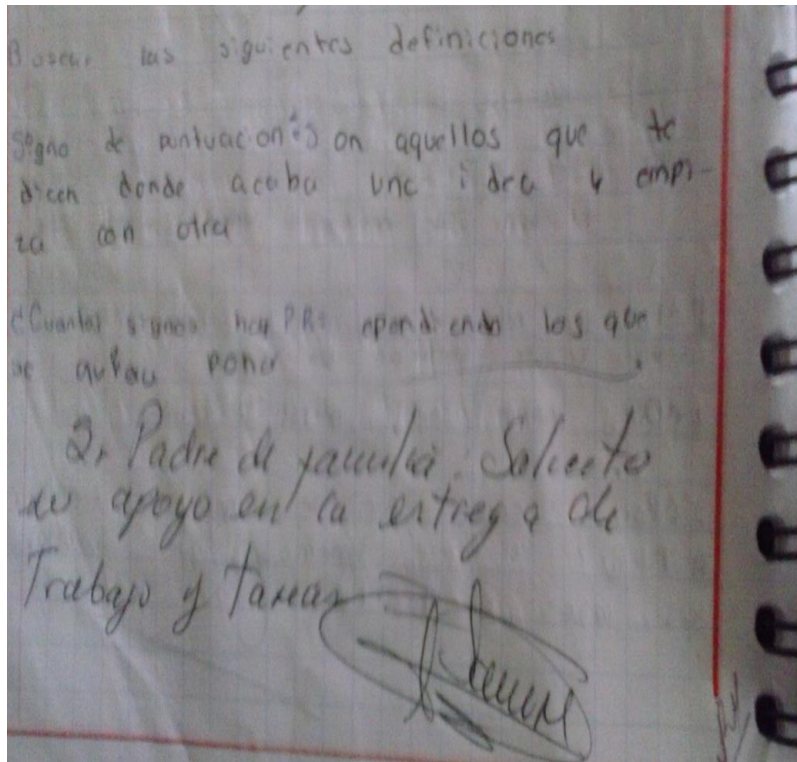 Buscar las siguientes definiciones
Signo de puntuacion: Son aquellos que te
dicen donde acaba una idea y empi-
za con otra
¿Cuantos signos hay PR= ependiendo los que
se
poner
Sr. Padre de familia. Solicito
su apoyo en la entrega de
Trabajo y tareas